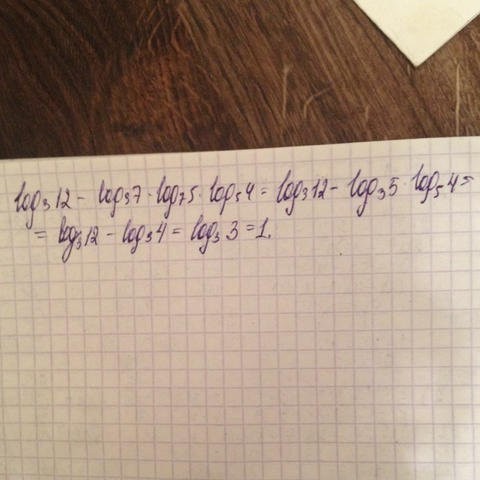 log₃12 - log₃7 · log₇5 · log₅4 = log₃12 - log₃5 · log₅4 =
= log₃12 - log₃4 = log₃3 = 1.